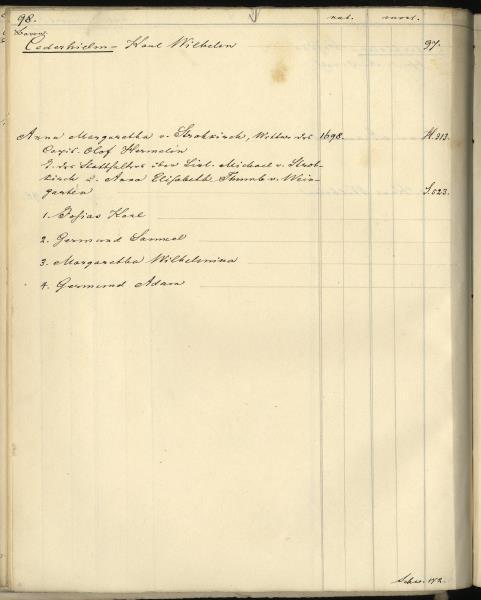 98. nat. mort.
Baron
Cederhielm - Karl Wilhelm 97.
Anna Margaretha v. Strokirch, Wittwe des 1698. H. 313.
Capit. Olof Hermelin
T. des Statthalters über Livl. Michael v. Strok-
kirch u. Anna Elisabeth Thumb v. Wein-
garten S. 523.
1. Josias Karl
2. Germund Samuel
3. Margaretha Wilhelmina
4. Germund Adam